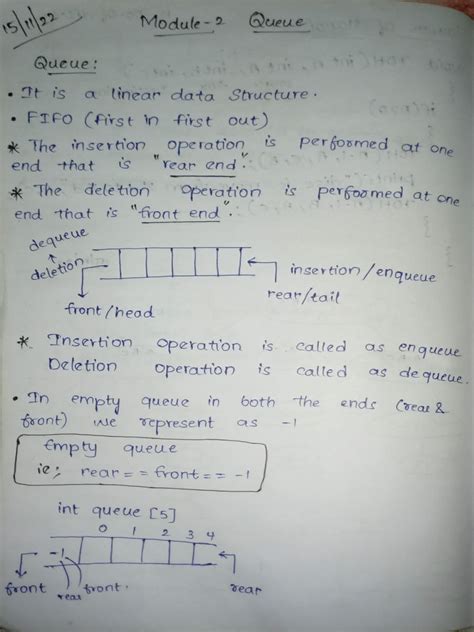 15/11/22
Module-2 Queue
Queue:
• It is a linear data structure.
• FIFO (first in first out)
* The insertion operation is performed at one
end that is "rear end".
* The deletion operation is performed at one
end that is "front end".
dequeue
deletion
insertion/enqueue
rear/tail
front/head
* Insertion operation is called as enqueue
Deletion operation is called as dequeue.
• In empty queue in both the ends (rear &
front) we represent as -1
Empty queue
ie; rear == front == -1
int queue [5]
0 1 2 3 4
-1
front rear front. rear